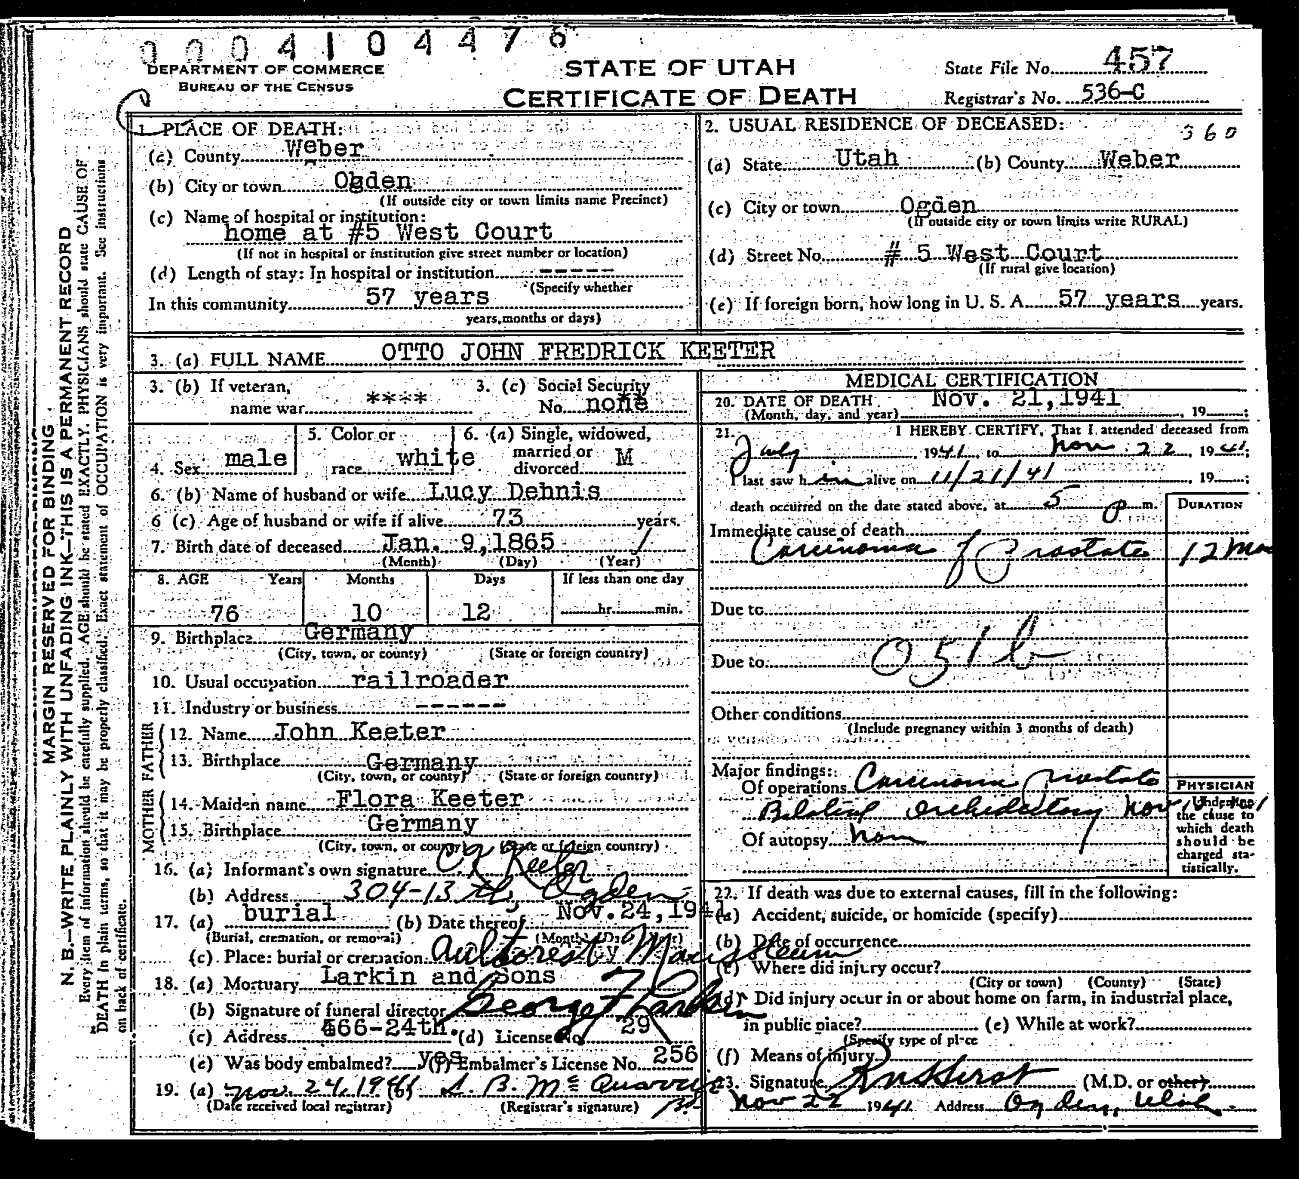 0004104476
DEPARTMENT OF COMMERCE
BUREAU OF THE CENSUS
STATE OF UTAH
CERTIFICATE OF DEATH
State File No. 457
Registrar's No. 536-C
1. PLACE OF DEATH:
(a) County Weber
(b) City or town Ogden
(If outside city or town limits name Precinct)
(c) Name of hospital or institution:
home at #5 West Court
(If not in hospital or institution give street number or location)
(d) Length of stay: In hospital or institution -----
(Specify whether
In this community 57 years
years, months or days)
2. USUAL RESIDENCE OF DECEASED:
360
(a) State Utah (b) County Weber
(c) City or town Ogden
(If outside city or town limits write RURAL)
(d) Street No. # 5 West Court
(If rural give location)
(e) If foreign born, how long in U. S. A. 57 years years.
3. (a) FULL NAME OTTO JOHN FREDRICK KEETER
3. (b) If veteran, name war ****
3. (c) Social Security No. none
4. Sex male
5. Color or race white
6. (a) Single, widowed, married or divorced M
6. (b) Name of husband or wife Lucy Dehnis
6 (c) Age of husband or wife if alive 73 years.
7. Birth date of deceased Jan. 9,1865
(Month) (Day) (Year)
8. AGE Years Months Days If less than one day
76 10 12 hr. min.
9. Birthplace Germany
(City, town, or county) (State or foreign country)
10. Usual occupation railroader
11. Industry or business ------
FATHER
12. Name John Keeter
13. Birthplace Germany
(City, town, or county) (State or foreign country)
MOTHER
14. Maiden name Flora Keeter
15. Birthplace Germany
(City, town, or county) (State or foreign country)
16. (a) Informant's own signature Keeter
(b) Address 304-13th, Ogden
17. (a) burial (b) Date thereof Nov.24,1941
(Burial, cremation, or removal) (Month) (Day) (Year)
(c) Place: burial or cremation Aultorest Mausoleum
18. (a) Mortuary Larkin and Sons
(b) Signature of funeral director George Larkin
(c) Address 466-24th. (d) License No. 29
(e) Was body embalmed? yes (f) Embalmer's License No. 256
19. (a) Nov. 24, 1941 (b)
(Date received local registrar) (Registrar's signature)
MEDICAL CERTIFICATION
20. DATE OF DEATH Nov. 21,1941
(Month, day, and year) , 19 ;
21. I HEREBY CERTIFY, That I attended deceased from
July , 1941, to Nov. 22, 1941;
I last saw him alive on 11/21/41 , 19 ;
death occurred on the date stated above, at 5 p m.
DURATION
Immediate cause of death
Carcinoma of Prostate 12 Mos
Due to
Due to 051b
Other conditions
(Include pregnancy within 3 months of death)
Major findings:
Of operations Carcinoma prostate
Bilateral orchidectomy Nov
Of autopsy
PHYSICIAN
Underline the cause to which death should be charged statistically.
22. If death was due to external causes, fill in the following:
(a) Accident, suicide, or homicide (specify)
(b) Date of occurrence
(c) Where did injury occur?
(City or town) (County) (State)
(d) Did injury occur in or about home on farm, in industrial place,
in public place? (e) While at work?
(Specify type of place
(f) Means of injury
23. Signature (M.D. or other)
Nov 22 1941 Address Ogden, Utah.
MARGIN RESERVED FOR BINDING
N. B.—WRITE PLAINLY WITH UNFADING INK—THIS IS A PERMANENT RECORD
Every item of information should be carefully supplied. AGE should be stated EXACTLY. PHYSICIANS should state CAUSE OF
DEATH in plain terms, so that it may be properly classified. Exact statement of OCCUPATION is very important. See instructions
on back of certificate.